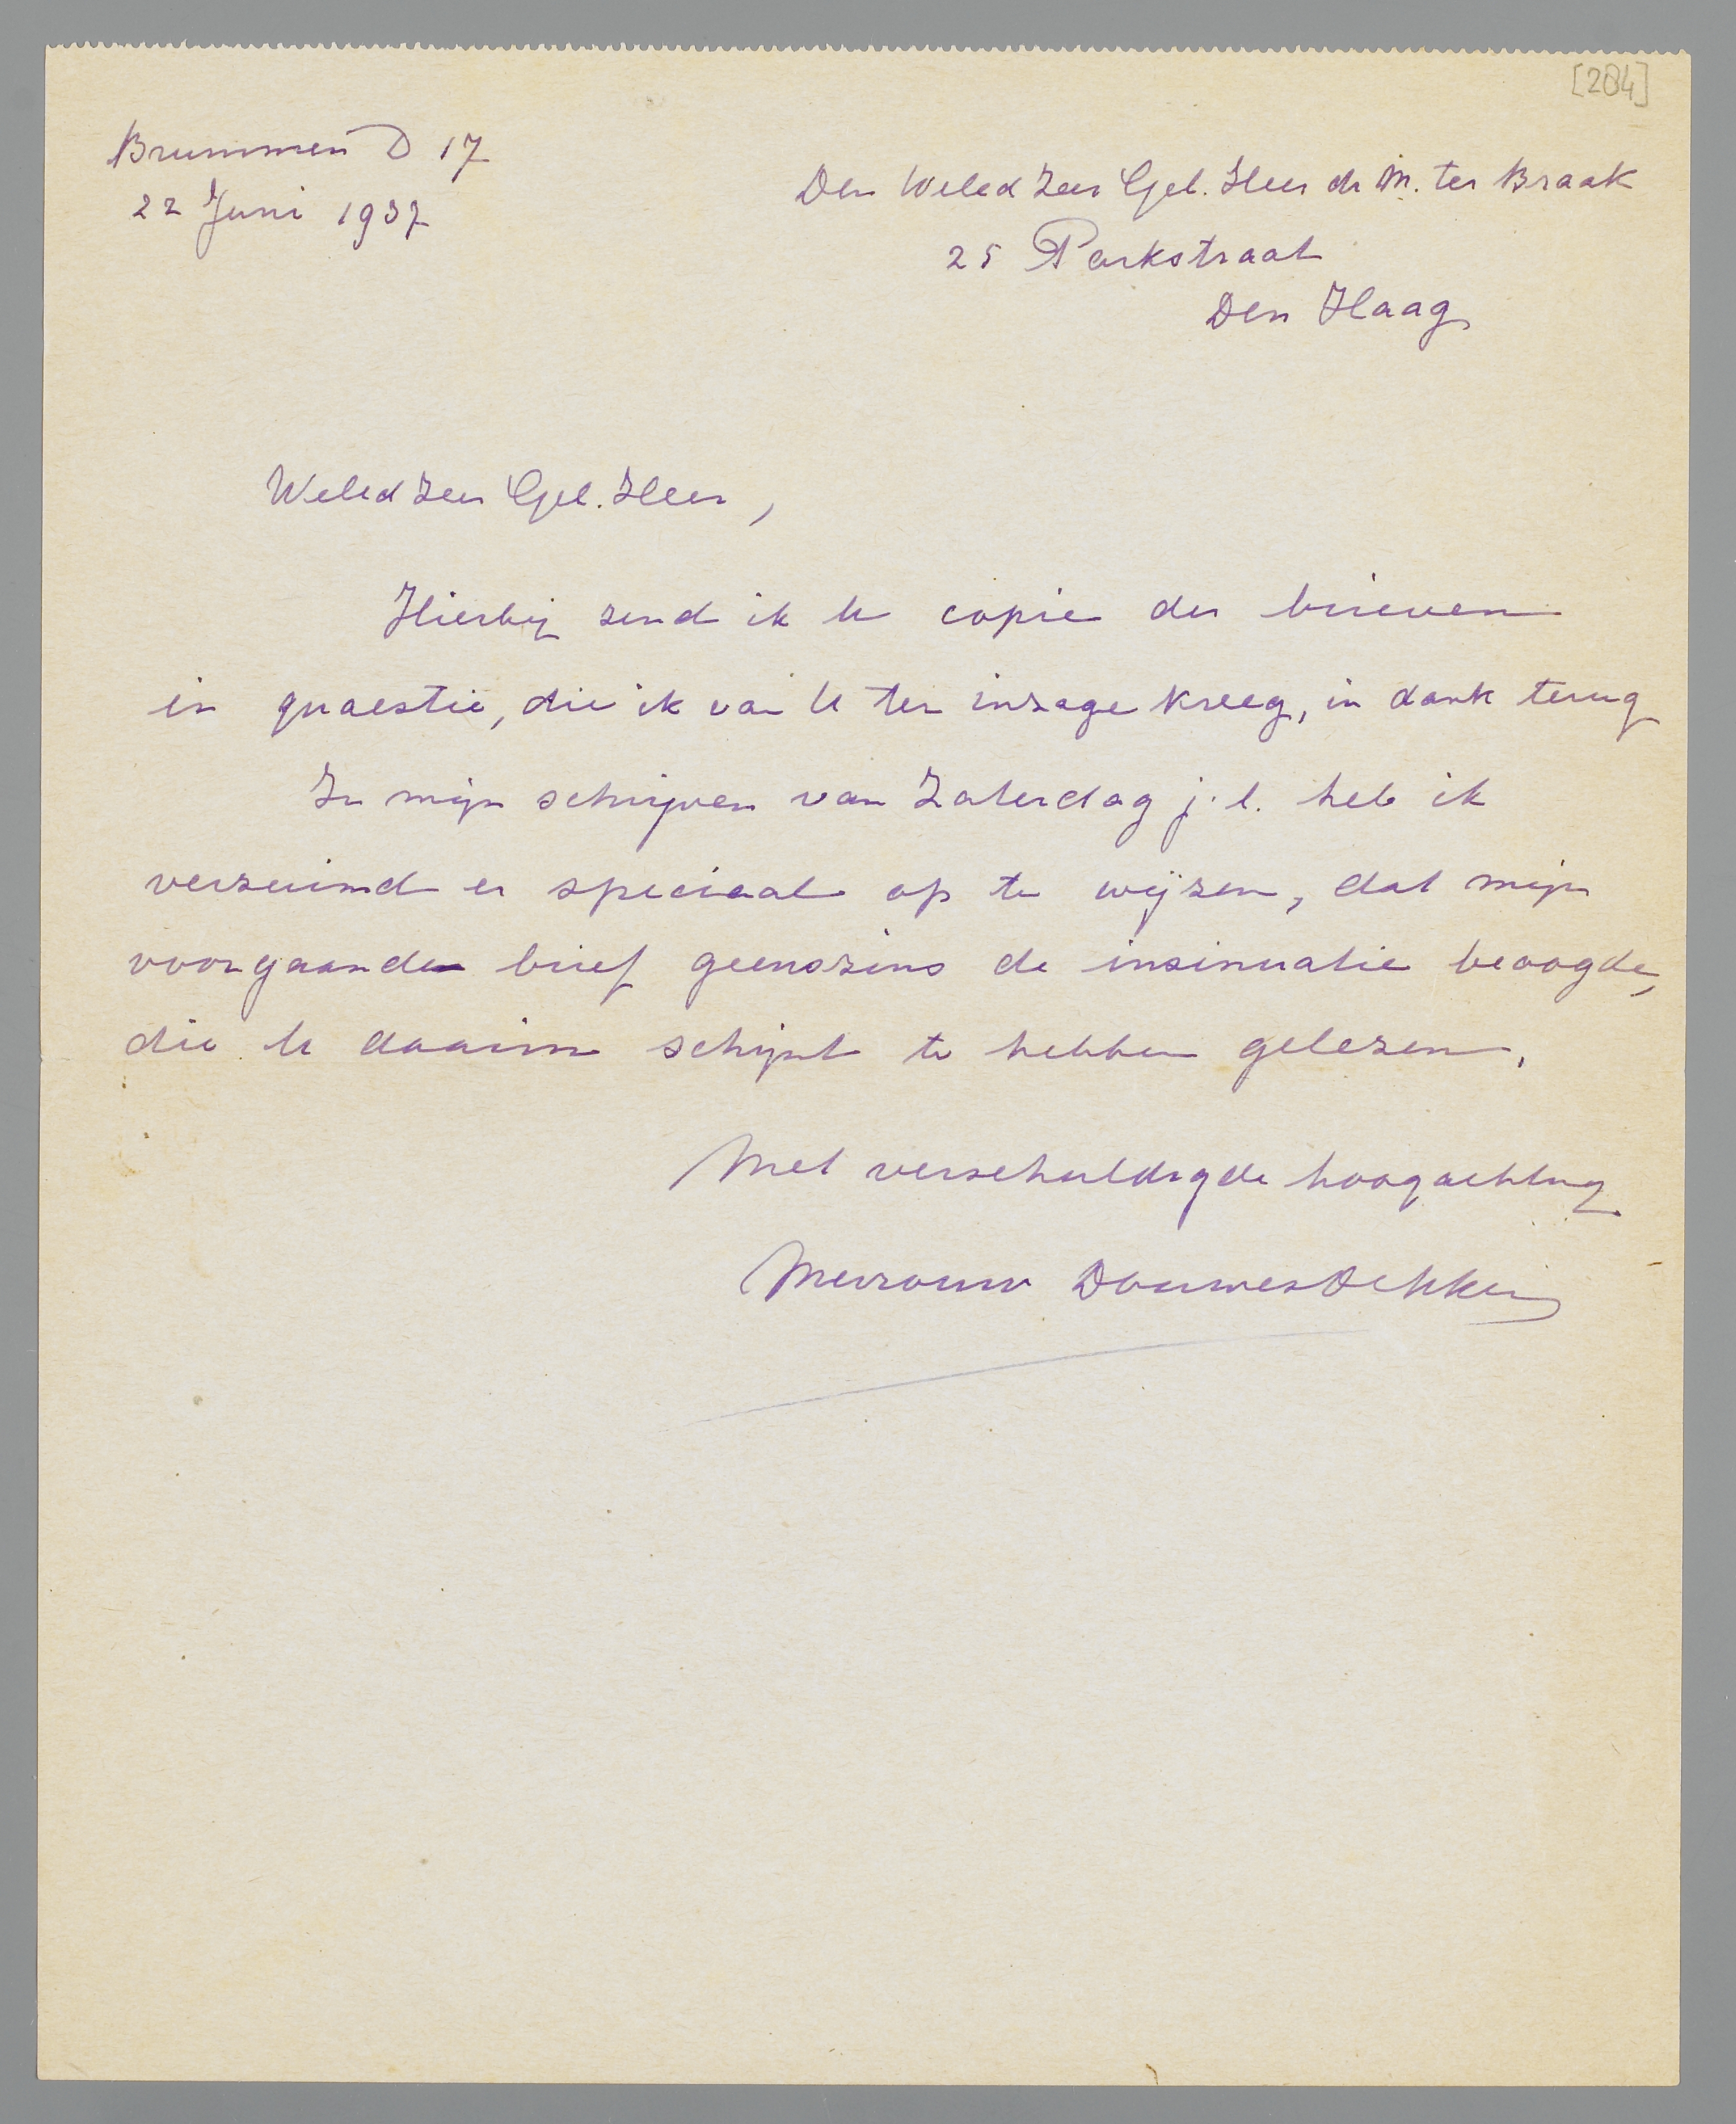 [284]
Brummen D 17
22 Juni 1937
Den Weled Zeer Gel. Heer dr M. ter Braak
25 Parkstraat
Den Haag
Weled Zeer Gel. Heer,
Hierbij zend ik U copie der brieven
in quaestie, die ik van U ter inzage kreeg, in dank terug
In mijn schrijven van Zaterdag j.l. heb ik
verzuimd er speciaal op te wijzen, dat mijn
voorgaande brief geenszins de insinuatie beoogde,
die U daarin schijnt te hebben gelezen.
Met verschuldigde hoogachting
Mevrouw Douwes Dekker